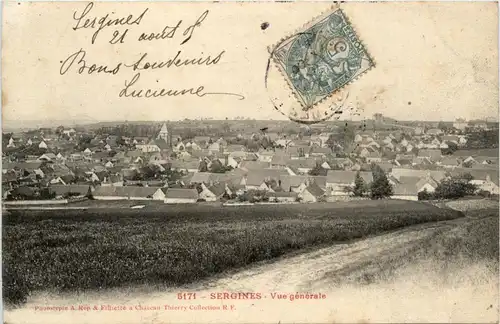 Sergines
21 août 05
Bons Souvenirs
Lucienne
5171 - SERGINES - Vue générale
Phototypie A. Rep & Filliette à Chateau Thierry Collection R. F.